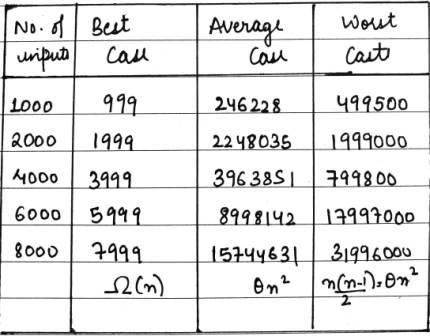 No. of Best Average Worst
inputs Case Case Cast
1000 999 246228 499500
2000 1999 2248035 1999000
4000 3999 3963851 799800
6000 5999 8998142 17997000
8000 7999 15744631 31996000
Ω(n) θn² n(n-1)/2 = θn²